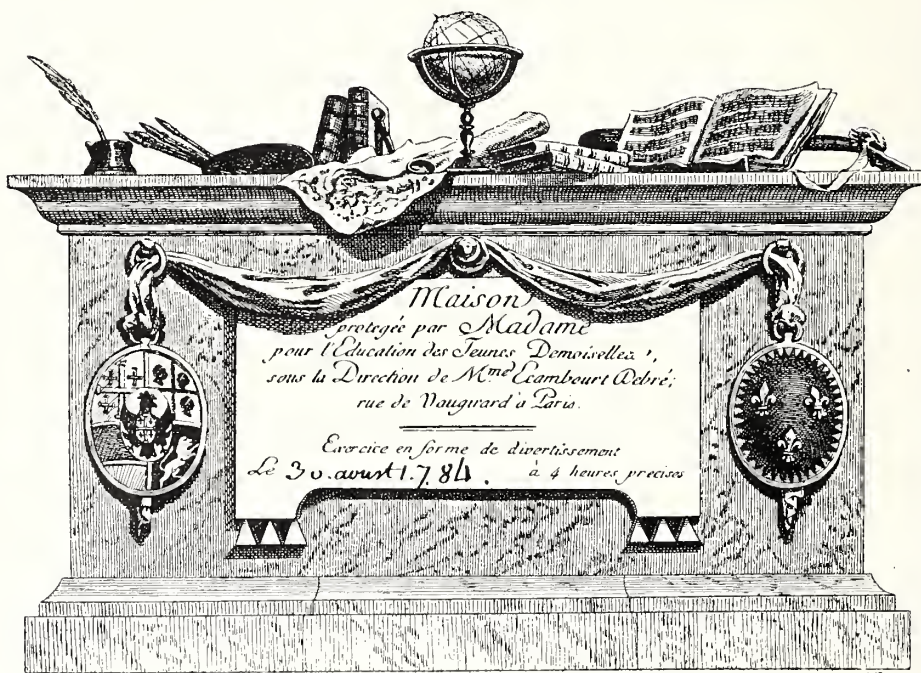 Maison
protegée par Madame
pour l'Education des Jeunes Demoiselles,
sous la Direction de M.me Ecambourt Debré;
rue de Vaugirard à Paris.
Exercice en forme de divertissement
Le 30. aoust 1784. à 4 heures precises